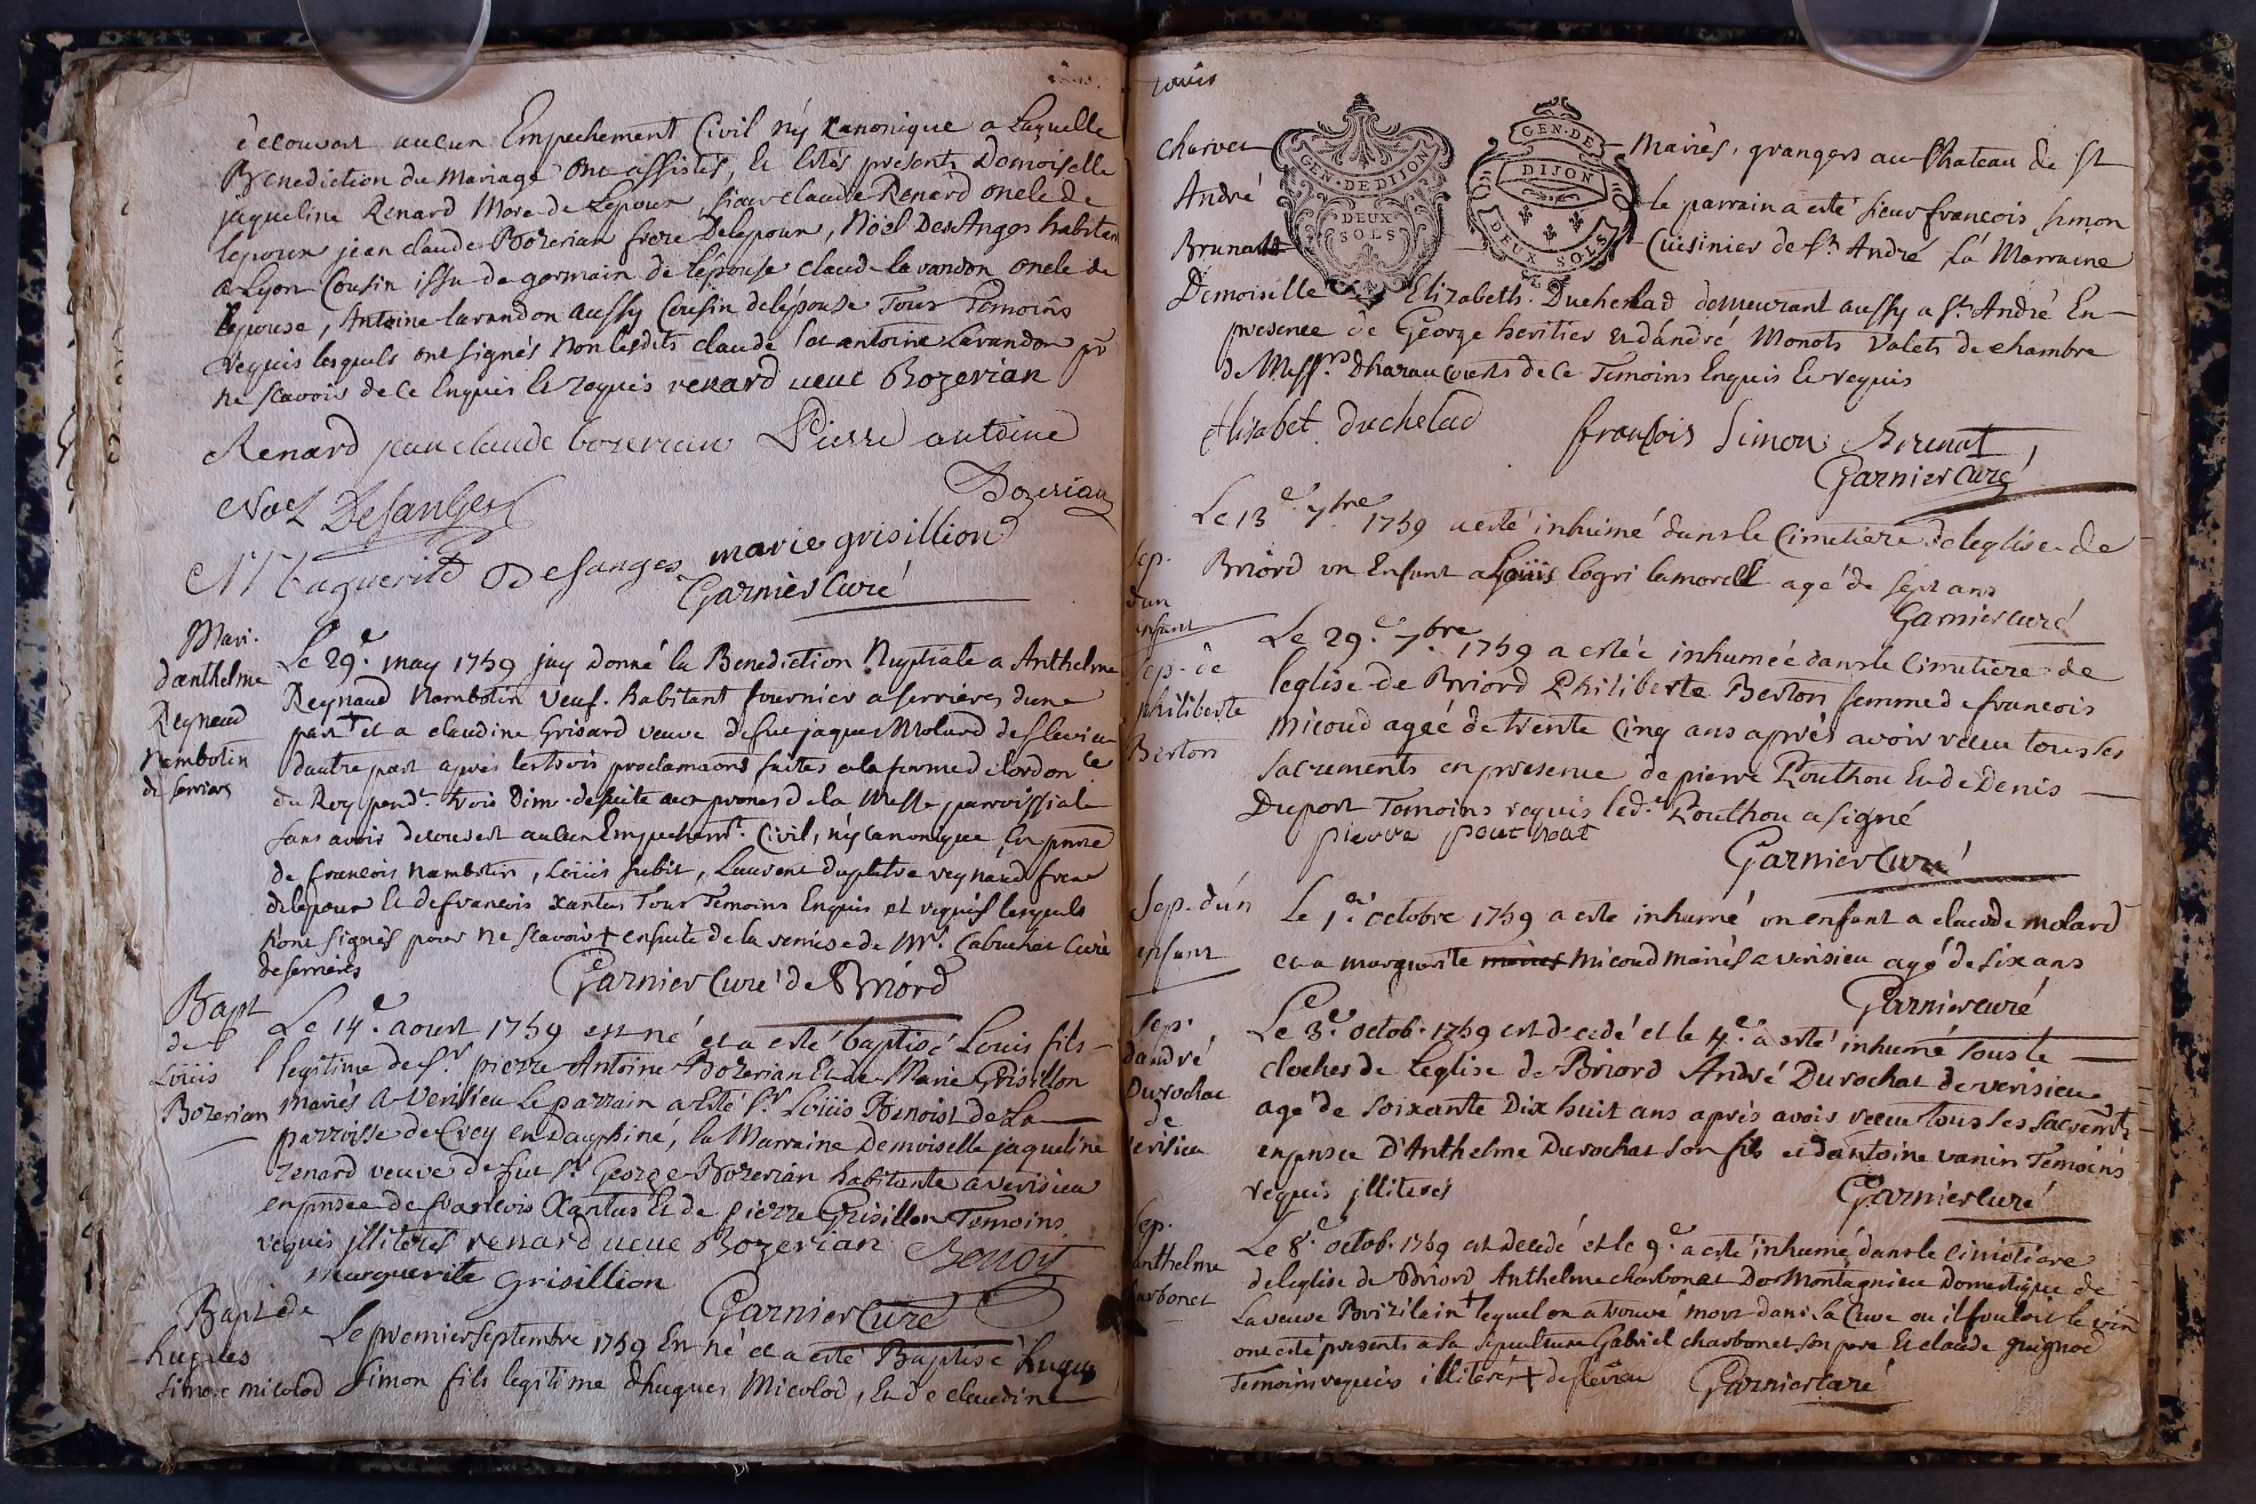 decouvert aucun Empechement Civil ny Canonique a Laquelle
Benediction du Mariage ont assistés, et Estés presents Demoiselle
jaqueline Renard Mere de Lepoux, sieur claude Renard oncle de
lepoux jean claude Bozerian frere Delepoux, Nöel DesAnges habitant
a Lyon Cousin issu de germain de lépouse claude lavandon oncle de
lepouse, Antoine lavandon aussy Cousin delépouse Tous Temoins
requis lesquels ont signés Non lesdits claude et antoine Lavandon pr
ne scavoir de ce Enquis et requis renard veuve Bozerian
Renard jean claude bozerian Pierre antoine
Bozerian
Noel Desanges
Marguerite Desanges marie grisillion
Garnier Curé
Mari.
danthelme
Reynaud
Nambotin
de serrieres
Le 29.e may 1759 jay donné la Benediction Nuptiale a Anthelme
Reynaud Nambotin veuf. habitant fournier a serrieres dune
part + et a claudine Grisard veuve de feu jaques Molard de flevieu
dautre part apres les trois proclamaõns faites a la forme de lordonce
du Roy pendt. trois Dim. de suite aux prones de la Messe parroissiale
sans avoir decouvert aucun Empechemt. Civil, ny canonique, En pnce
de francois Nambotin, Loüis subit, Laurent duplatre reynaud frere
delepoux et de francois xantus Tous Temoins Enquis et requis lesquels
n'ont signés pour ne scavoir + ensuite de la remise de Mr. Cabuchet Curé
de serrieres
Garnier Curé de Briord
Bapt
de
Loüis
Bozerian
Le 14.e aoust 1759 est né et a esté baptisé Louis fils
legitime de Sr. pierre Antoine Bozerian Et de Marie Grisillon
mariés a Verisieu Le parrain a Esté Sr. Loüis Benoist de La
parroisse de Crey en Dauphiné, la Marraine Demoiselle jaqueline
renard veuve de feu Sr. George Bozerian habitante a verisieu
en pnsce de francois Xantus Et de pierre Grisillon Temoins
requis jlliterés renard veuve Bozerian Benoit
marguerite Grisillion
Garnier Curé
Bapt de
hugues
simon micolod
Le premier septembre 1759 Est né et a esté Baptisé hugues
Simon fils legitime d'hugues Micolod, Et de claudine
Charvet
Mariés, grangers au Chateau de St
André
le parrain a esté sieur francois simon
Brunat
Cuisinier de St. André La Marraine
Demoiselle Elizabeth Duchelad demeurant aussy a St. André En
presence de George heritier et d'andré Monots Valets de chambre
de Messrs. Dharaucourts de ce Temoins Enquis Et requis
Elisabet duchelad françois Simon Brunat
Garnier Curé
GEN·DE DIJON
DEUX
SOLS
GEN·DE
DIJON
DEUX SOLS
Sep.
dun
enfant
Le 13.e 7bre 1759 a esté inhumé dans le Cimetiere de leglise de
Briord un Enfant a Loüis logri lamorell agé de sept ans
Garnier curé
Sep. de
philiberte
Berton
Le 29.e 7bre. 1759 a estée inhumée dans le Cimetiere de
leglise de Briord Philiberte Berton femme de francois
micoud agée de trente Cinq ans aprés avoir receu tous ses
sacrements en presence de pierre Pouthou Et de Denis
Duport Temoins requis led.t Pouthou a signé
pierre poutout
Garnier Curé
Sep. dún
enfant
Le 1.er octobre 1759 a este inhumé un enfant a claude molard
et a marguerite micoud mariés a verisieu agé de six ans
Garnier curé
Sep.
dandré
Durochat
de
verisieu
Le 3.e octob. 1759 est decedé et le 4.e a esté inhumé sous le
clocher de Leglise de Briord André Durochat de verisieu
agé de soixante Dix huit ans aprés avoir receu tous ses sacremts
en pnsce D'Anthelme Durochat son fils et dantoine vanin Temoins
requis jlliterés
Garnier Curé
Sep.
anthelme
charbonet
Le 8.e octob. 1759 est decedé et le 9.e a esté inhumé dans le cimetiere
deleglise de Briord Anthelme charbonet De Montagnieu Domestique de
La veuve Brizilain + lequel on a trouvé mort dans la Cuve ou il fouloit le vin
ont esté presents a sa sepulture Gabriel charbonet son pere Et claude guignod
Temoins requis illiterés + de flevieu Garnier Curé